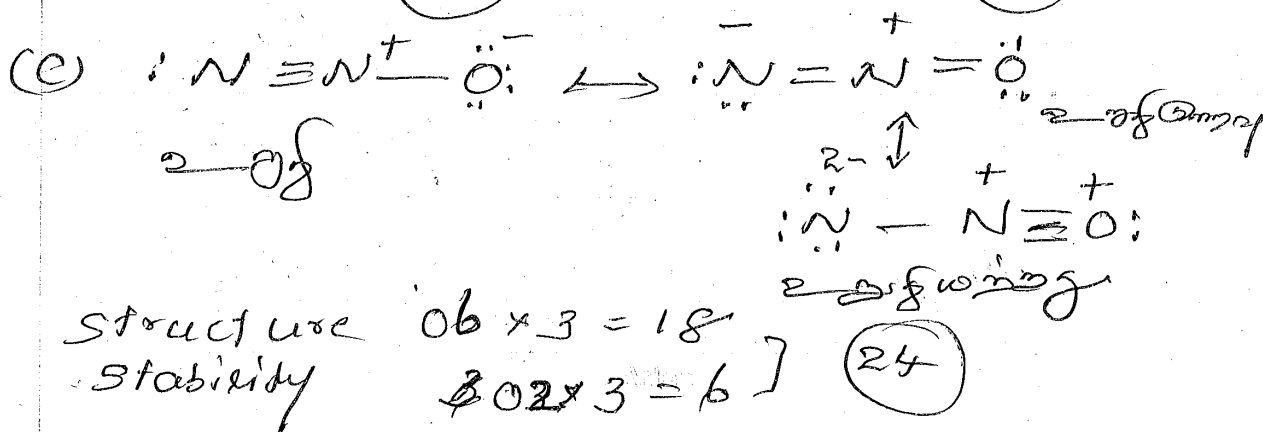 (c) :N≡N⁺—Ö:⁻ ⟷ :N̈⁻=N⁺=Ö
உறுதி
உறுதி குறைவு
↕
2-
:N̈—N⁺≡O⁺:
உறுதியற்றது
structure 06 × 3 = 18
stability 02 × 3 = 6 ] 24